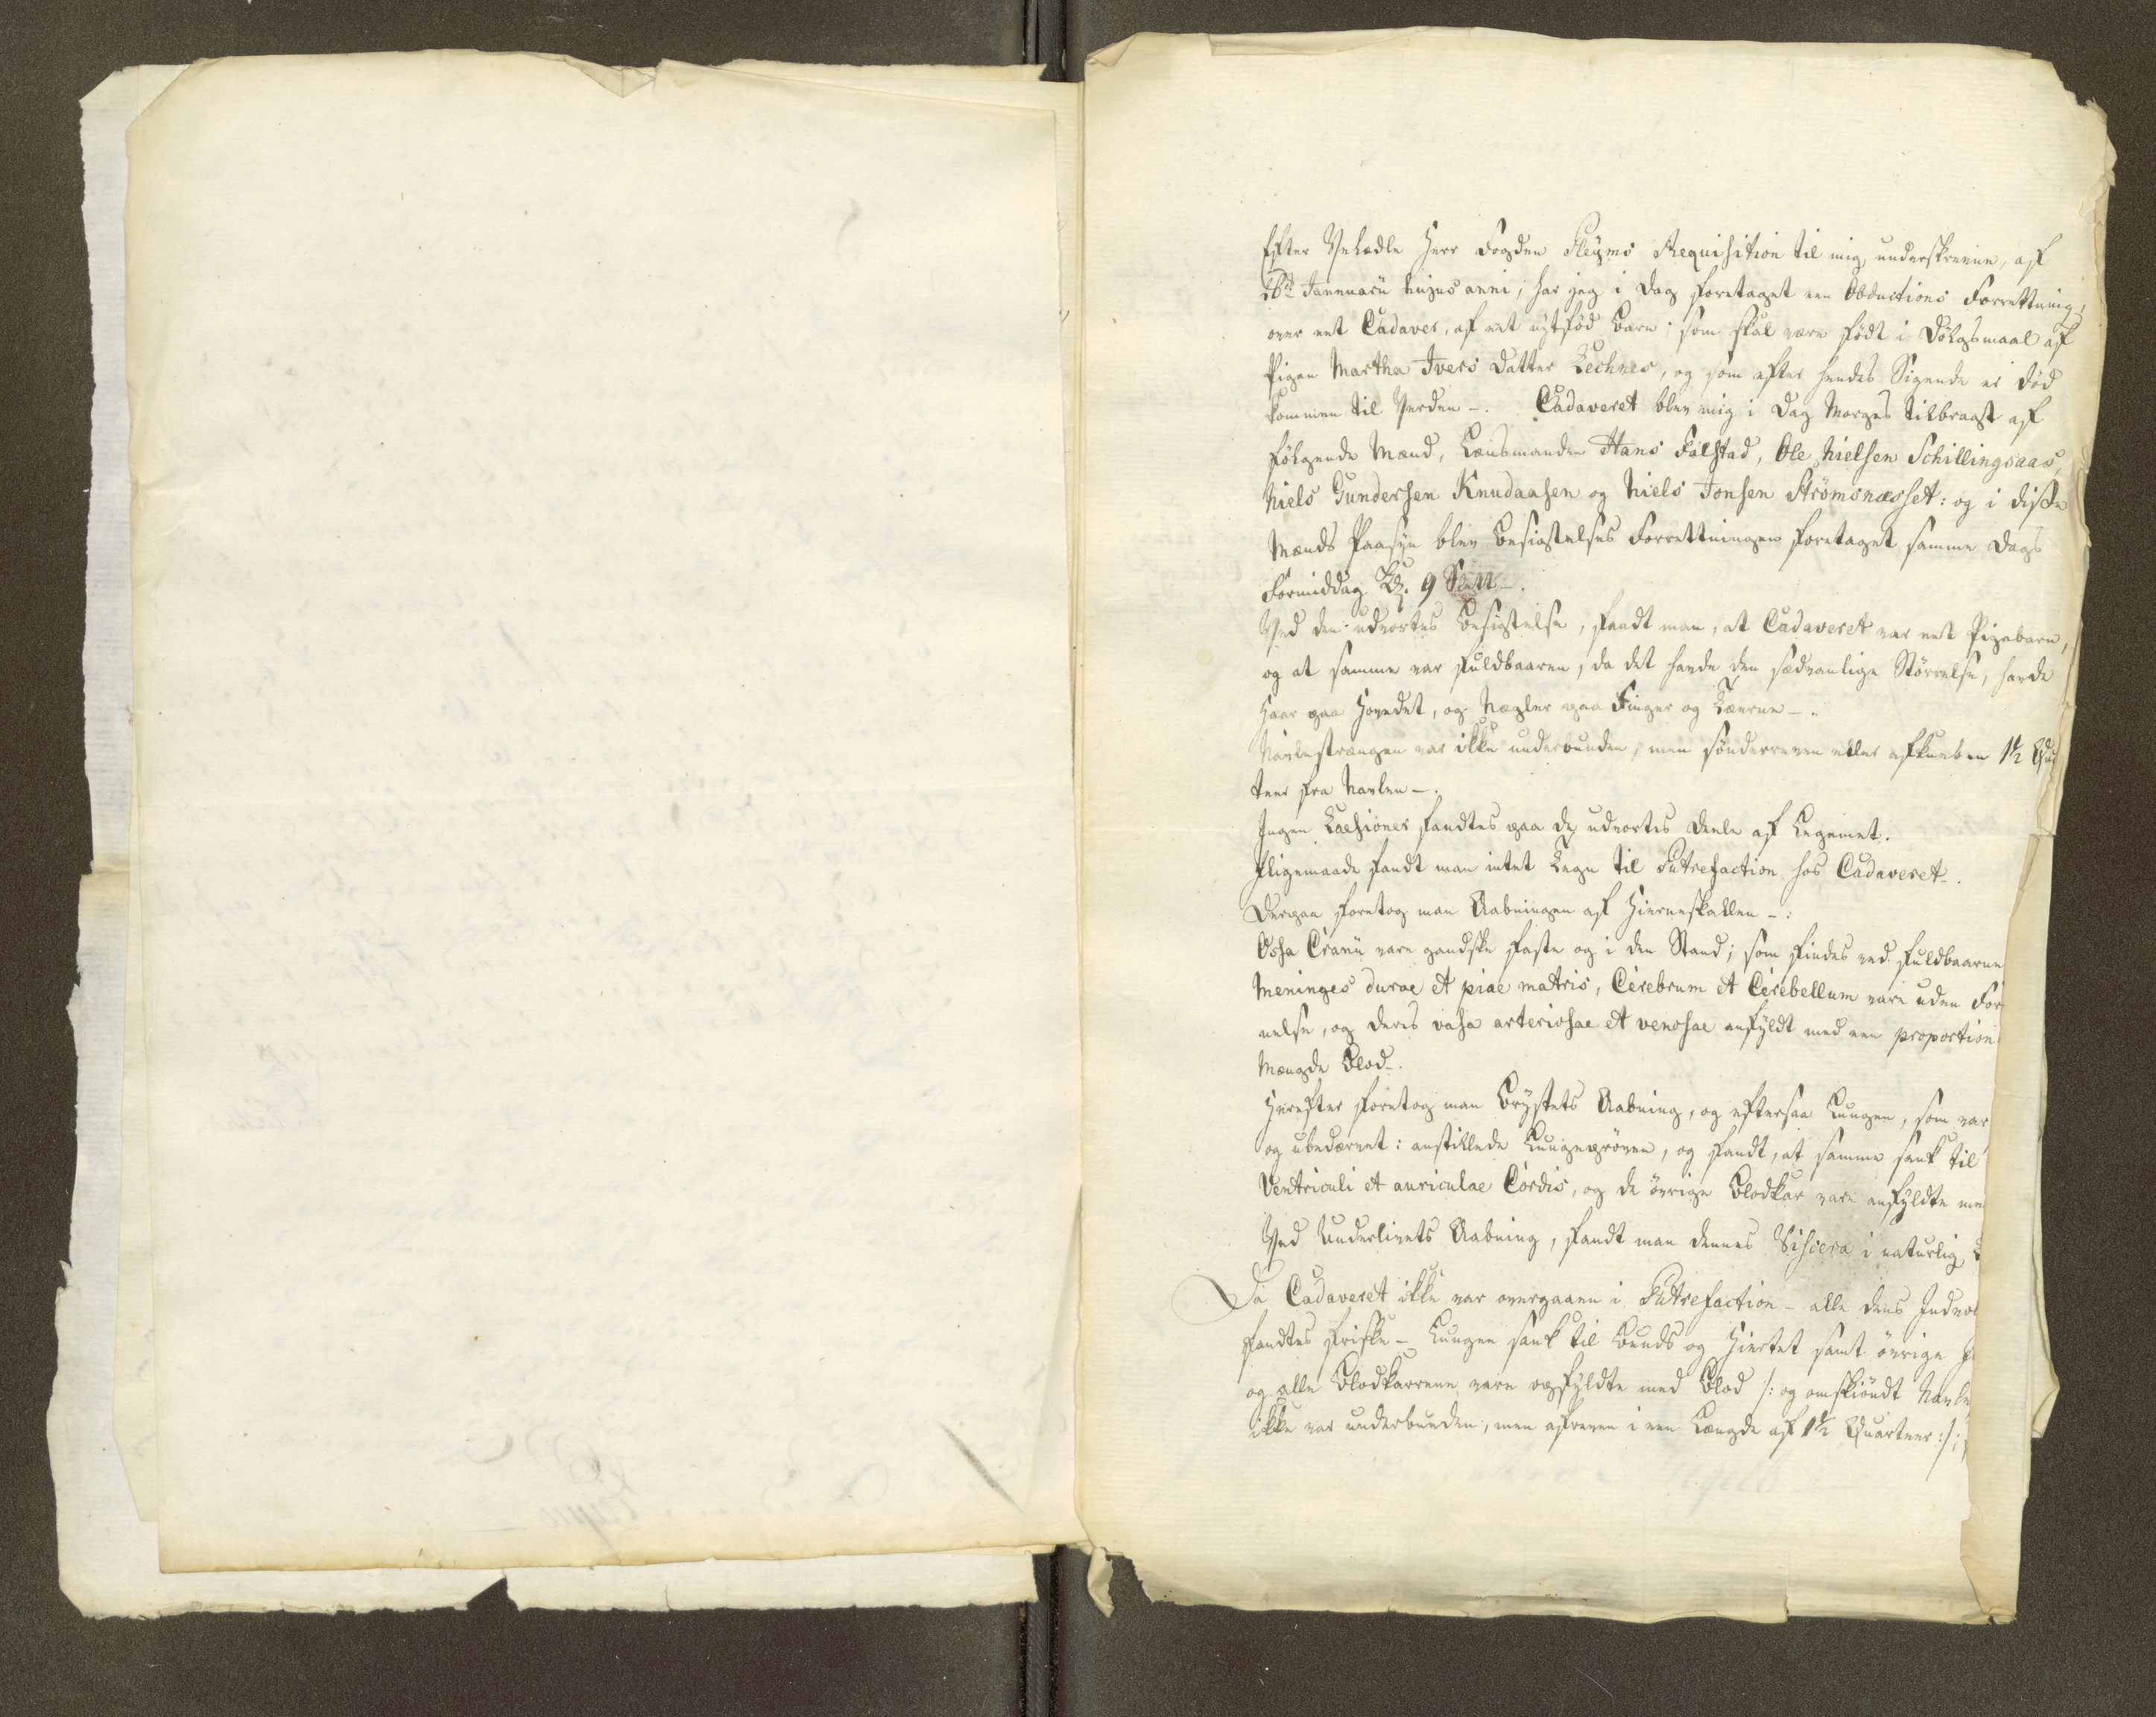 Efter Velædle Herr Fogden Fleÿms Requisition til mig underskreven, af
26de Januarii hujus anni, har jeg i Dag foretaget een Obductions Forrettning,
over eet Cadaver, af eet nÿtfød Barn; som skal være født i Dølgsmaal af
Pigen Martha Ivers Datter Lechnes, og som efter hendes Sigende er død
kommen til Verden -. Cadaveret blev mig i Dag Morges tilbragt af
følgende Mænd, Lensmanden Hans Falstad, Ole Nielsen Schillingsaas,
Niels Gundersen Knudaasen og Niels Jonsen Strømsnæsset: og i disse
Mænds Paasÿn blev Besigtelses Forrettningen foretaget samme Dags
Formiddag Kl. 9
Ved den udvortes Besigtelse, fandt man, at Cadaveret var eet Pigebarn,
og at samme var fuldbaaren, da det havde den sædvanlige Størrelse, havde
Haar paa Hovedet, og Negler paa Finger og Tæerne -.
Navlestrængen var ikke underbunden, men sønderreven eller afkneben 1½ Qvar
teer fra Navlen -.
Ingen Laesioner fandtes paa de udvortes Deele af Legemet.
Eligemaade fandt man intet Tegn til Putrefaction hos Cadaveret -.
Derpaa foretog man Aabningen af Hierneskallen -:
Ossa Cranii vare gandske faste og i den Stand; som findes ved fuldbaarne
Meninges durae et piae matris, Cerebrum et Cerebellum vare uden For
nelse, og deres vasa arteriosae et venosae anfÿldt med een proportion
Mængde Blod -.
Herefter foretog man Brÿstets Aabning, og eftersaa Lungen, som var
og ubedærvet: anstillede Lungeprøven, og fandt, at samme sank til
Ventriculi et auriculae Cordis, og de øvrige Blodkar vare anfÿldte me
Ved Underlivets Aabning, fandt man dennes Viscera i naturlig
Da Cadaveret ikke var overgaaen i Putrefaction - alle dens Indvol
fandtes friske - Lungen sank til Bunds og Hiertet samt øvrige
og alle Blodkarrene vare opfÿldte med Blod /: og omskiøndt Navle
ikke var underbunden, men afreven i een Længde af 1½ Qvarteer :/;